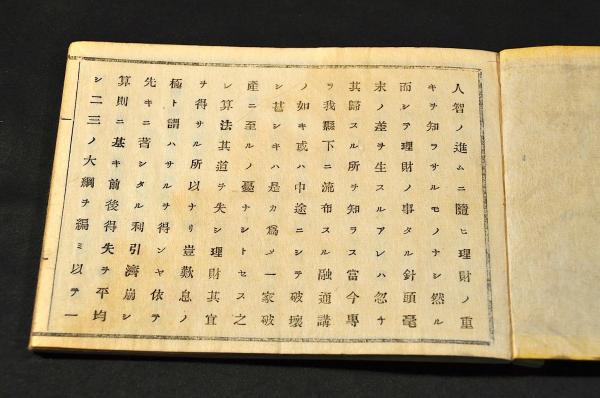 人智ノ進ムニ隨ヒ理財ノ重
キヲ知ラサルモノナシ然ル
而シテ理財ノ事タル針頭毫
末ノ差ヲ生スルアレハ忽チ
其歸スル所ヲ知ラス當今專
ラ我縣下ニ流布スル融通講
ノ如キ或ハ中途ニシテ破壞
シ甚シキハ是カ爲メ一家破
產ニ至ルノ憂ナシトセス之
レ算法其道ヲ失シ理財其宜
ヲ得サル所以ナリ豈歎息ノ
極ト謂ハサルヲ得ンヤ依テ
先キニ著シタル利引濟崩シ
算則ニ基キ前後得失ヲ平均
シ二三ノ大綱ヲ編ミ以テ一